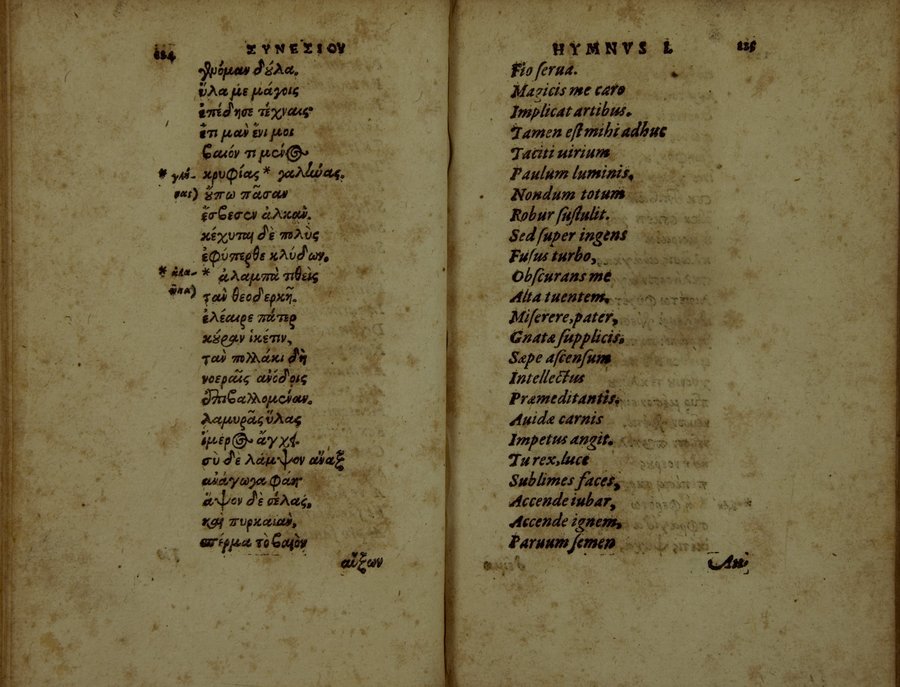 124 ΣΥΝΕΣΙΟΥ
γενόμαν δούλα.
ὕλα με μάγοις
ἐπέδησε τέχναις·
ἔτι μὰν ἔνι μοι
βαιόν τι μένος
* γλή- κρυφίας * γαλήνας.
ναις) οὔπω πᾶσαν
ἔσβεσεν ἀλκάν.
κέχυται δὲ πολὺς
ἐφύπερθε κλύδων.
* ἀλα- * ἀλαμπὰ τιθεὶς
τὰν θεοδερκῆ.
ἐλέαιρε πάτερ
κούραν ἱκέτιν,
τὰν πολλάκι δὴ
νοεραῖς ἀνόδοις
ἐπιβαλλομέναν.
λαμυρᾶς ὕλας
ἵμερος ἄγχει.
σὺ δὲ λάμψον ἄναξ
ἀνάγωγα φάη·
ἅψον δὲ σέλας,
καὶ πυρκαιὰν,
σπέρμα τὸ βαιὸν
αὔξων
HYMNVS I. 125
Fio serua.
Magicis me caro
Implicat artibus.
Tamen est mihi adhuc
Taciti uirium
Paulum luminis,
Nondum totum
Robur sustulit.
Sed super ingens
Fusus turbo,
Obscurans me
Alta tuentem.
Miserere, pater,
Gnatæ supplicis.
Sæpe ascensum
Intellectus
Præmeditantis.
Auidæ carnis
Impetus angit.
Tu rex, luce
Sublimes faces,
Accende iubar,
Accende ignem,
Paruum semen
Au